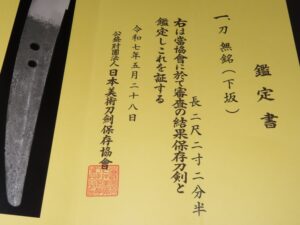 鑑定書
一、刀 無銘(下坂)
長 二尺二寸二分半
右は當協會に於て審査の結果保存刀剣と
鑑定しこれを証する
令和七年五月二十八日
公益財団法人日本美術刀剣保存協會